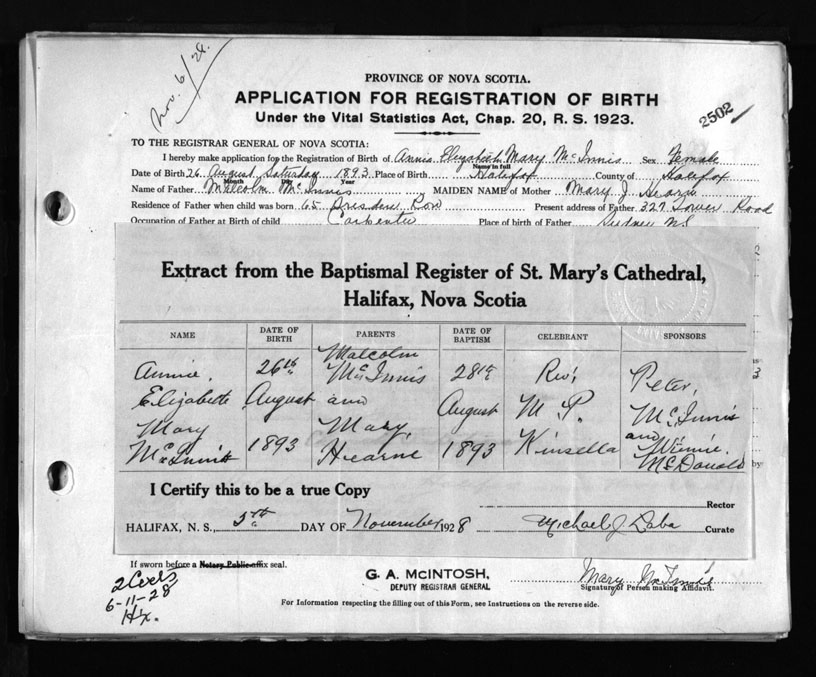 Nov. 6/28.
PROVINCE OF NOVA SCOTIA.
APPLICATION FOR REGISTRATION OF BIRTH
Under the Vital Statistics Act, Chap. 20, R. S. 1923.
2502
TO THE REGISTRAR GENERAL OF NOVA SCOTIA:
I hereby make application for the Registration of Birth of Annie Elizabeth Mary McInnis Sex Female
Name in full
Date of Birth 26 August Saturday 1893 Place of Birth Halifax County of Halifax
Month Day Year
Name of Father Malcolm McInnis MAIDEN NAME of Mother Mary J. Hearne
Residence of Father when child was born 65 Dresden Row Present address of Father 327 Tower Road
Occupation of Father at Birth of child Carpenter Place of birth of Father Sydney N.S
Extract from the Baptismal Register of St. Mary's Cathedral,
Halifax, Nova Scotia
NAME DATE OF BIRTH PARENTS DATE OF BAPTISM CELEBRANT SPONSORS
Annie Elizabeth Mary McInnis
26th August 1893
Malcolm McInnis and Mary Hearne
28th August 1893
Rev. M. P. Kinsella
Peter McInnis and Winnie McDonald
by
I Certify this to be a true Copy
Rector
HALIFAX, N. S., 5th DAY OF November 1928 Michael J. Curate
If sworn before a Notary Public affix seal.
2 Certs
6-11-28
Hx.
G. A. McINTOSH,
DEPUTY REGISTRAR GENERAL
Mary McInnis
Signature of Person making Affidavit.
For Information respecting the filling out of this Form, see Instructions on the reverse side.